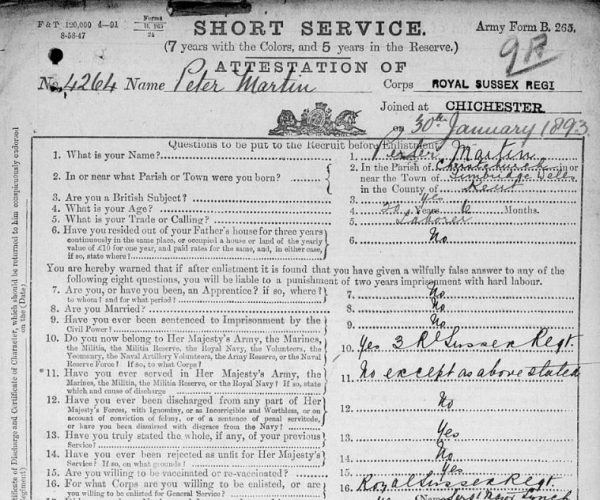 F & T 120,000 4—91
8-58-47
Forms
B. 265
24
SHORT SERVICE.
Army Form B. 265.
(7 years with the Colors, and 5 years in the Reserve.)
ATTESTATION OF
No. 4264 Name Peter Martin Corps ROYAL SUSSEX REGI
Joined at CHICHESTER
on 30th January 1893
Questions to be put to the Recruit before Enlistment.
1. What is your Name? 1. Peter Martin
2. In or near what Parish or Town were you born? 2. In the Parish of in or
near the Town of
in the County of Kent
3. Are you a British Subject? 3. Yes
4. What is your Age? 4. 20 Years 6 Months.
5. What is your Trade or Calling? 5. Laborer
6. Have you resided out of your Father's house for three years
continuously in the same place, or occupied a house or land of the yearly
value of £10 for one year, and paid rates for the same, and, in either case,
if so, state where? 6. No
You are hereby warned that if after enlistment it is found that you have given a wilfully false answer to any of the
following eight questions, you will be liable to a punishment of two years imprisonment with hard labour.
7. Are you, or have you been, an Apprentice? if so, where?
to whom? and for what period? 7. No
8. Are you Married? 8. No
9. Have you ever been sentenced to Imprisonment by the
Civil Power? 9. No
10. Do you now belong to Her Majesty's Army, the Marines,
the Militia, the Militia Reserve, the Royal Navy, the Volunteers, the
Yeomanry, the Naval Artillery Volunteers, the Army Reserve, or the Naval
Reserve Force? If so, to what Corps? 10. Yes 3 Rl Sussex Regt
*11. Have you ever served in Her Majesty's Army, the
Marines, the Militia, the Militia Reserve, or the Royal Navy? If so, state
which and cause of discharge 11. No except as above stated
12. Have you ever been discharged from any part of Her
Majesty's Forces, with Ignominy, or as Incorrigible and Worthless, or on
account of conviction of felony, or of a sentence of penal servitude,
or have you been dismissed with disgrace from the Navy? 12. No
13. Have you truly stated the whole, if any, of your previous
Service? 13. Yes
14. Have you ever been rejected as unfit for Her Majesty's
Service? If so, on what grounds? 14. No
15. Are you willing to be vaccinated or re-vaccinated? 15. Yes
16. For what Corps are you willing to be enlisted, or are
you willing to be enlisted for General Service? 16. Royal Sussex Regt
Certificate of Discharge and Certificate of Character, which should be returned to him conspicuously endorsed
on the (Date)